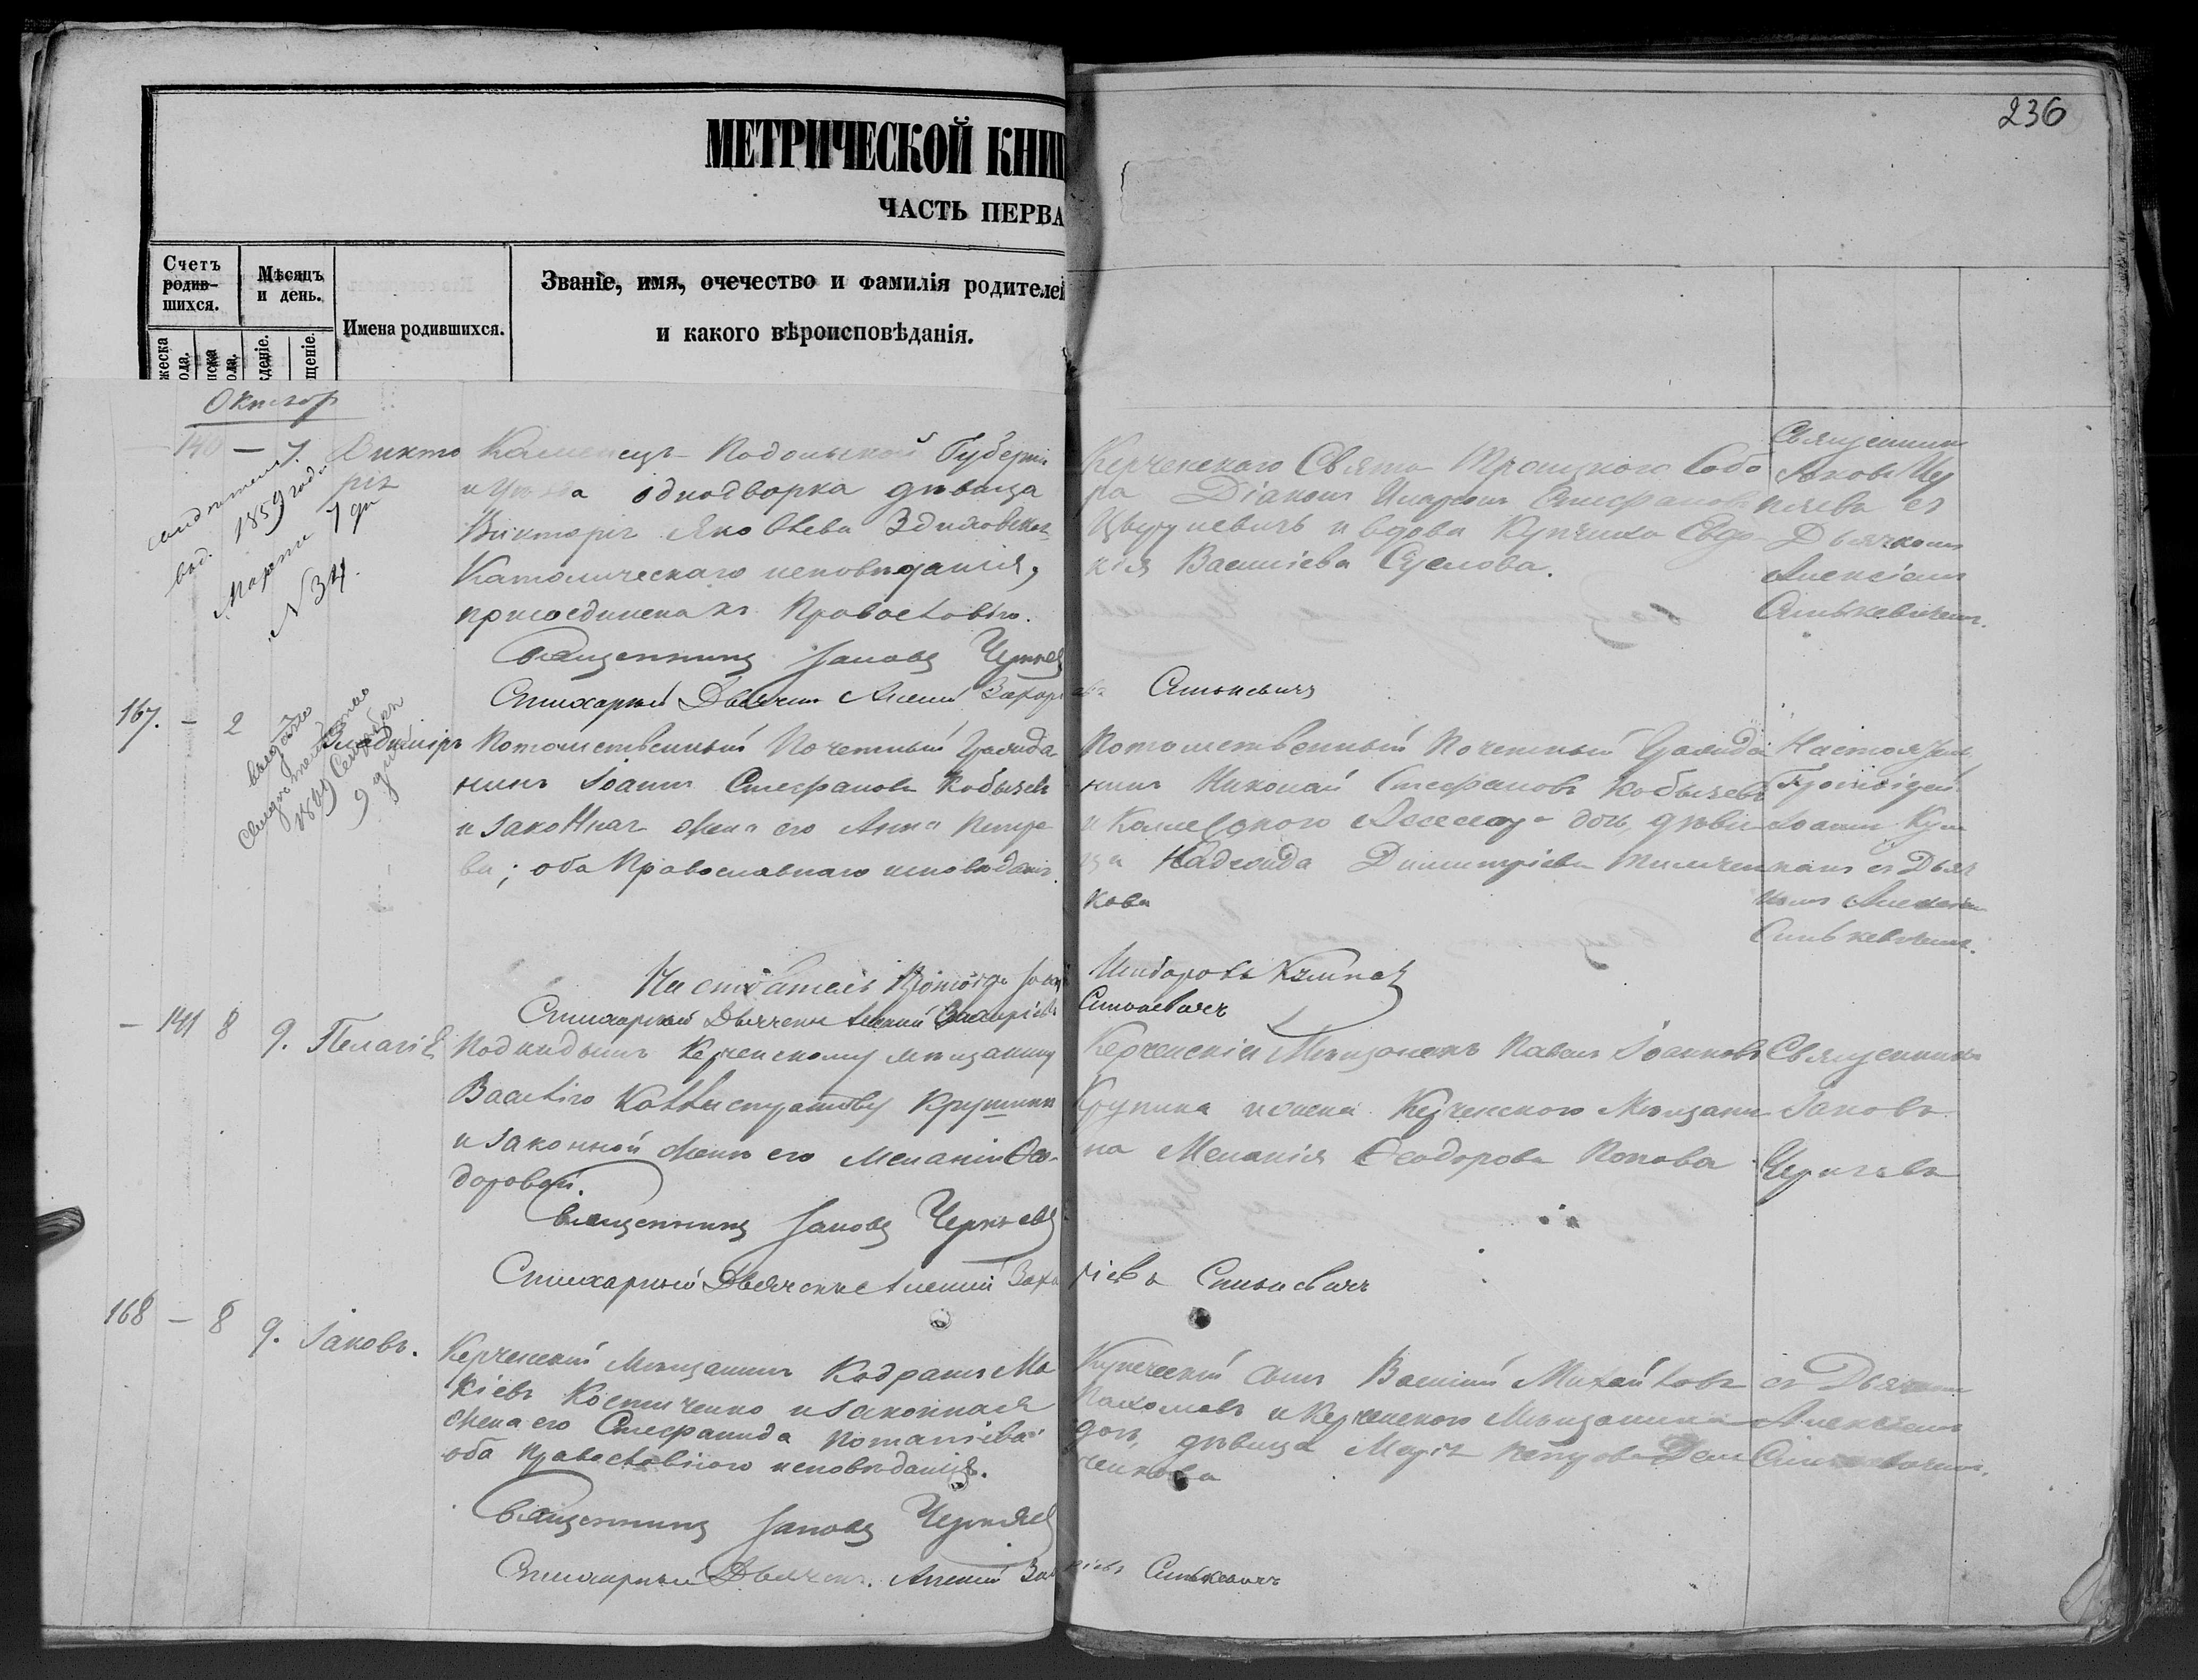 236
МЕТРИЧЕСКОЙ КНИГ
ЧАСТЬ ПЕРВА
Счетъ родив-шихся.
Мѣсяцъ и день.
Имена родившихся.
Званіе, имя, очечество и фамилія родителей
и какого вѣроисповѣданія.
жеска
ода.
нска
ола.
деніе.
щеніе.
Октябр
140 — 7. Викто
рія
1859 года
Марта 7 дн
№ 34.
Каменецъ-Подольской Губерніи
однодворка дѣвица
Викторія Яковлева
Католическаго исповѣданія,
присоединена къ Православію.
Священникъ Іаковъ Черняев
Стихарный Дьячекъ Алексій Захарі
Керченскаго Свято-Троицкаго Собо
ра Діаконъ Стефановъ
и вдова Купчиха Евдо
кія Василіева
Священник
Іаковъ Чер
няевъ съ
Дьячкомъ
Алексіемъ
Синькевичемъ.
Синькевичъ
167. — 2 7 Владиміръ
выдано
9 дня
Потомственный Почетный Гражда
нинъ Іоаннъ Стефановъ Кобызевъ
и законная жена его Анна Петро
ва; оба Православнаго исповѣданія.
Потомственный Почетный Гражда
нинъ Николай Стефановъ Кобызевъ
и Коллежского Ассесора дочь, дѣви
ца Надежда Димитріева
кова
Протоіерей
Іоаннъ Кум
панъ съ Дьяч
комъ Алексіем
Синькевичемъ.
Настоятель Протоіер Іоан
Стихарный Дьячекъ Алексій Захаріевъ
Синькевичъ
— 141 8 9. Пелагія
Подкидышъ Керченскому мѣщанину
Василію Каллистратову Крупкин
и законной женѣ его Меланіи Ѳео-
доровой.
Священникъ Іаковъ Черняевъ
Стихарный Дьячекъ Алексій Заха
Керченскій Мѣщанинъ Павелъ Іоанновъ
и жена Керченскаго Мѣщани
на Меланія Ѳеодорова Попова
Священникъ
Іаковъ
Черняевъ
ріевъ Синькевичъ
168 — 8 9. Іаковъ.
Керченскій Мѣщанинъ Кодратъ Мо
кіевъ Костиченко и законная
жена его Стефанида Потапіева
оба Православнаго исповѣданія.
Священникъ Іаковъ Черняев
Стихарный Дьячекъ. Алексій Зах
Купеческій сынъ Василій Михайловъ
Пахомовъ и Керченскаго Мѣщанина
дочь, дѣвица Марія Петрова Дем
ченкова
съ Дьячкомъ
Алексіемъ
Синькевичемъ.
ріевъ Синькевичъ